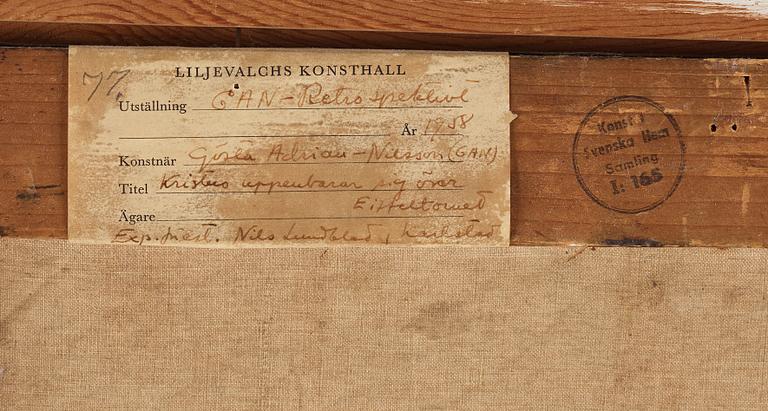 77.
LILJEVALCHS KONSTHALL
Utställning GAN-Retrospektivt
År 1958
Konstnär Gösta Adrian-Nilsson (GAN)
Titel Kristus uppenbarar sig över
Eiffeltornet
Ägare
Exp. Nils Lundblad, Karlstad
Konst i
Svenska Hem
Samling
I: 165